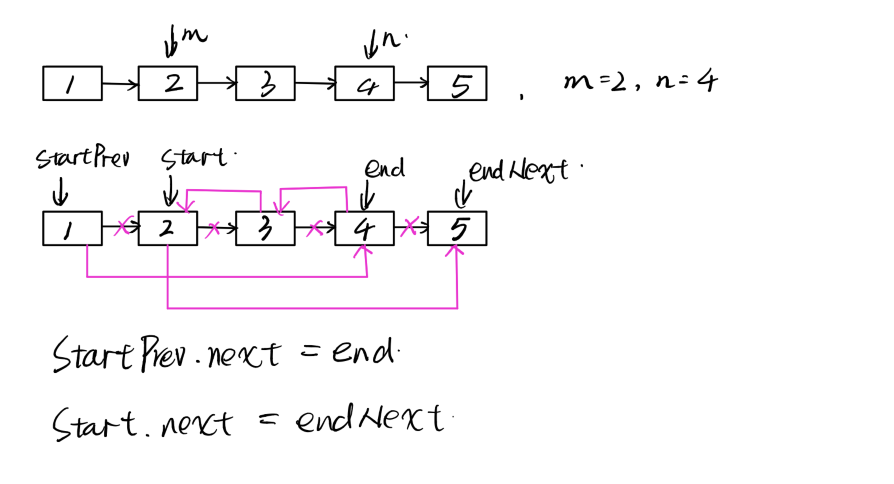 m n.
1 2 3 4 5 , m=2, n=4
startPrev start. end endNext.
1 2 3 4 5
StartPrev.next = end.
Start.next = endNext.